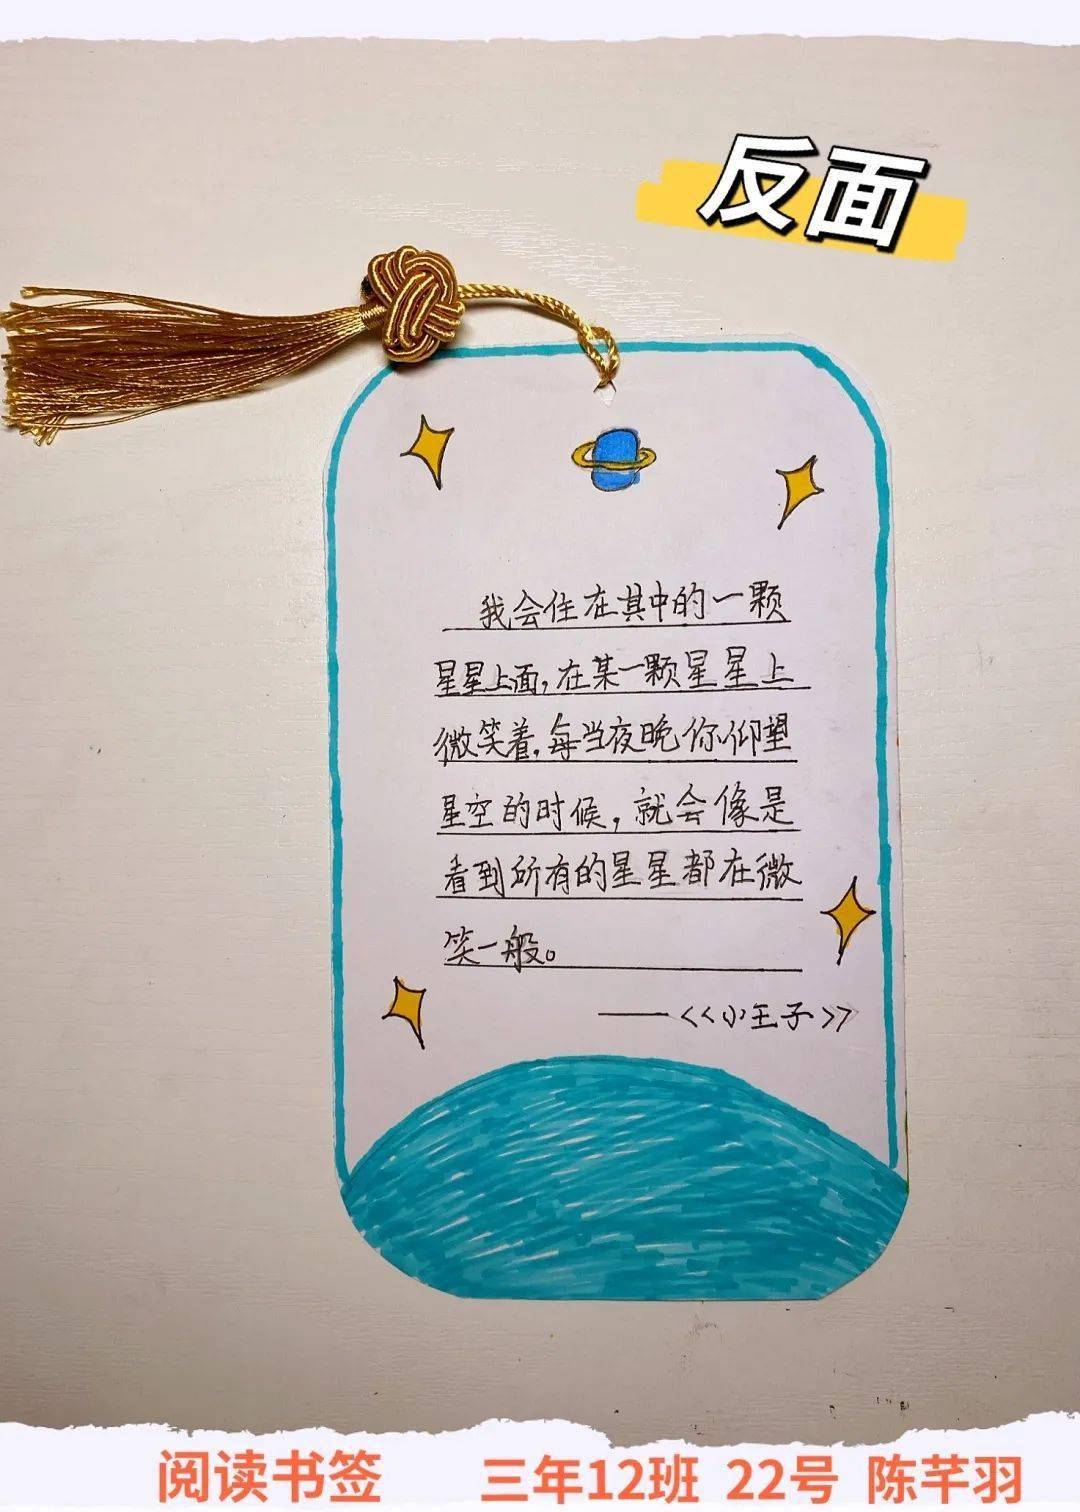 反面
我会住在其中的一颗
星星上面,在某一颗星星上
微笑着,每当夜晚你仰望
星空的时候,就会像是
看到所有的星星都在微
笑一般。
——<<小王子>>
阅读书签 三年12班 22号 陈芊羽